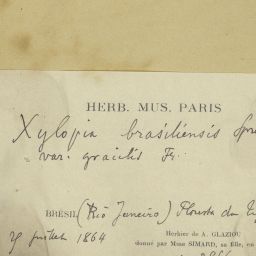 HERB. MUS. PARIS
Xylopia brasiliensis Spre
var. gracilis Fr.
BRÉSIL (Rio Janeiro) Floresta da Tij
Juillet 1864
Herbier de A. GLAZIOU
donné par Mme SIMARD, sa fille, en